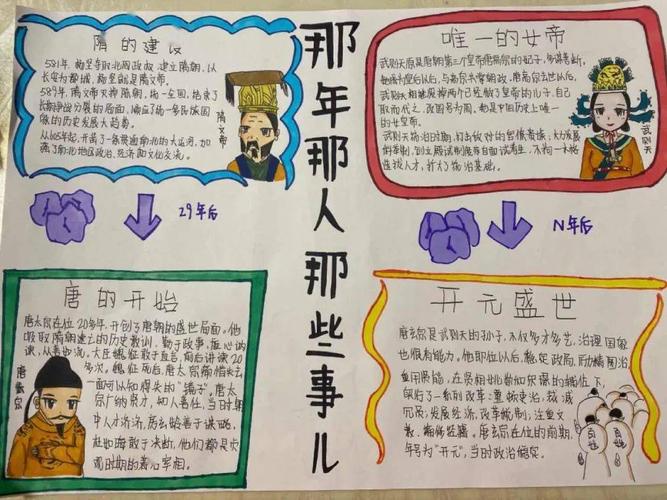 隋的建议
581年，杨坚夺取北周政权，建立隋朝，以
长安为都城，杨坚就是隋文帝。
589年，隋文帝灭掉陈朝，统一全国，结束了
长期分裂的局面，顺应了统一多民族国
家的历史发展大趋势。
从605年起，开凿了一条贯通南北的大运河，加
强了南北地区政治、经济和文化交流。
隋文帝
29年后
唐的开始
唐太宗在位20多年，开创了唐朝的盛世局面。他
吸取隋朝速亡的历史教训，勤于政事，虚心纳
谏，从善如流。大臣魏征敢于直言，前后谏议20
多次。魏征死后，唐太宗痛惜失去
一面可以知得失的"镜子"。唐太
宗广纳贤才，知人善任，当时期
中人才济济，房玄龄善于谋略，
杜如晦敢于决断，他们都是贞
观时期的著名宰相。
唐太宗
那年那人那些事儿
唯一的女帝
武则天原是唐朝第三个皇帝唐高宗的妃子，
她成为皇后以后，与高宗共掌朝政，唐高宗去世以后，
武则天相继废掉两个已经做了皇帝的儿子，自己
取而代之，改国号为周，她是中国历史上唯一
的女皇帝。
武则天统治时期，打击敌对的官僚贵族，大力发展
科举制，创立殿试制度，亲自面试考生，不拘一格
选拔人才，扩大了统治基础。
武则天
N年后
开元盛世
唐玄宗是武则天的孙子，不仅多才多艺，治理国家
也很有能力。他即位以后，稳定政局，励精图治
，在贤相姚崇和宋璟的辅佐下，
实行了一系列改革：整顿吏治，裁减
冗员，发展经济，改革税制，注重文
教，编修经籍。唐玄宗在位的前期，
年号为"开元"，当时政治稳定
百姓
百姓